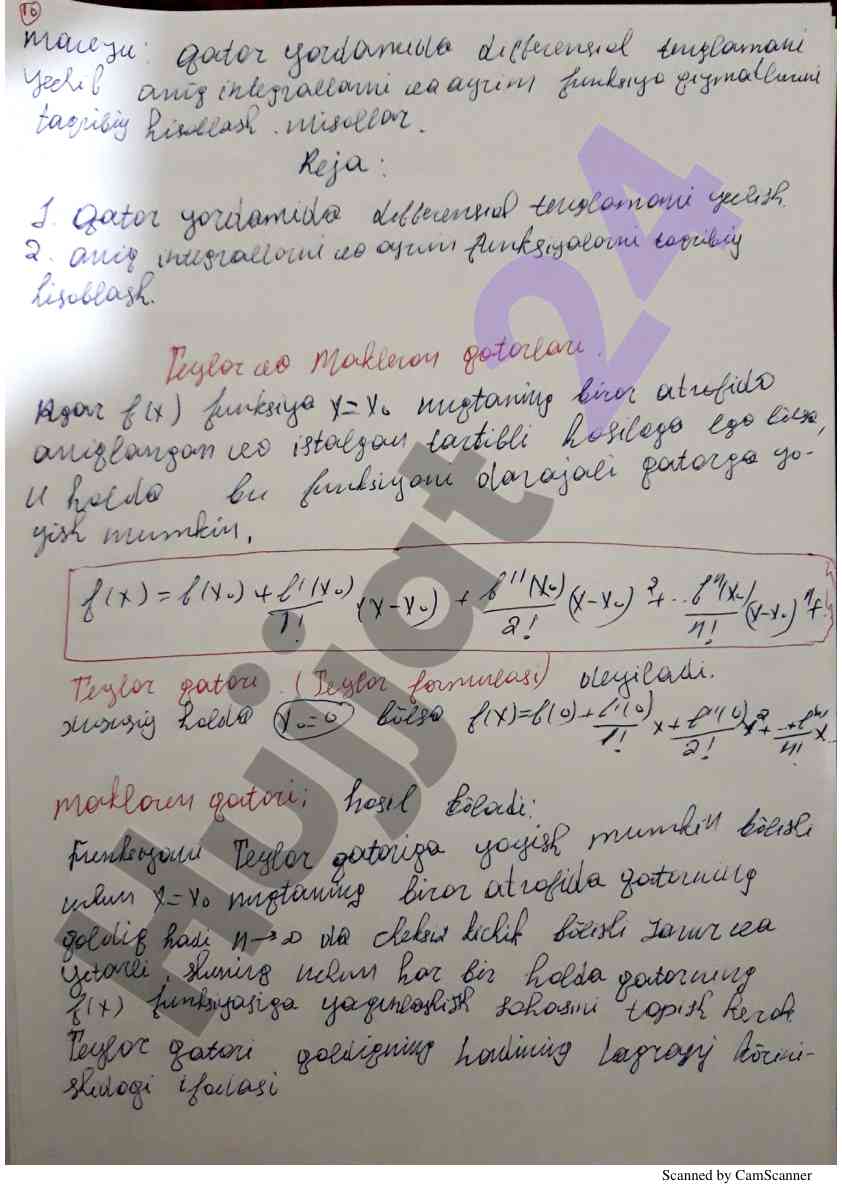 16
Mavzu: Qator yordamida differensial tenglamani
yechib aniq integrallarni va ayrim funksiya qiymatlarini
taqribiy hisoblash. misollar.
Reja:
1. Qator yordamida differensial tenglamani yechish.
2. aniq integrallarni va ayrim funksiyalarni taqribiy
hisoblash.
Teylor va Makloren qatorlari.
Agar f(x) funksiya x=x₀ nuqtaning biror atrofida
aniqlangan va istalgan tartibli hosilaga ega bo'lsa,
u holda bu funksiyani darajali qatorga yo-
yish mumkin.
f(x) = f(x₀) + f'(x₀)/1! (x-x₀) + f''(x₀)/2! (x-x₀)² + ... fⁿ(x₀)/n! (x-x₀)ⁿ +
Teylor qatori. (Teylor formulasi) deyiladi.
xususiy holda x₀=0 bo'lsa f(x)=f(0)+f'(0)/1! x+f''(0)/2! x²+..+fⁿ/n! x..
Makloren qatori; hosil bo'ladi:
Funksiyani Teylor qatoriga yoyish mumkin bo'lishi
uchun x=x₀ nuqtaning biror atrofida qatorning
qoldiq hadi n→∞ da cheksiz kichik bo'lishi zarur va
yetarli, shuning uchun har bir holda qatorning
f(x) funksiyasiga yaqinlashish sohasini topish kerak.
Teylor qatori qoldigning hadining Lagranj ko'rini-
shidagi ifodasi
Hujjat 24
Scanned by CamScanner